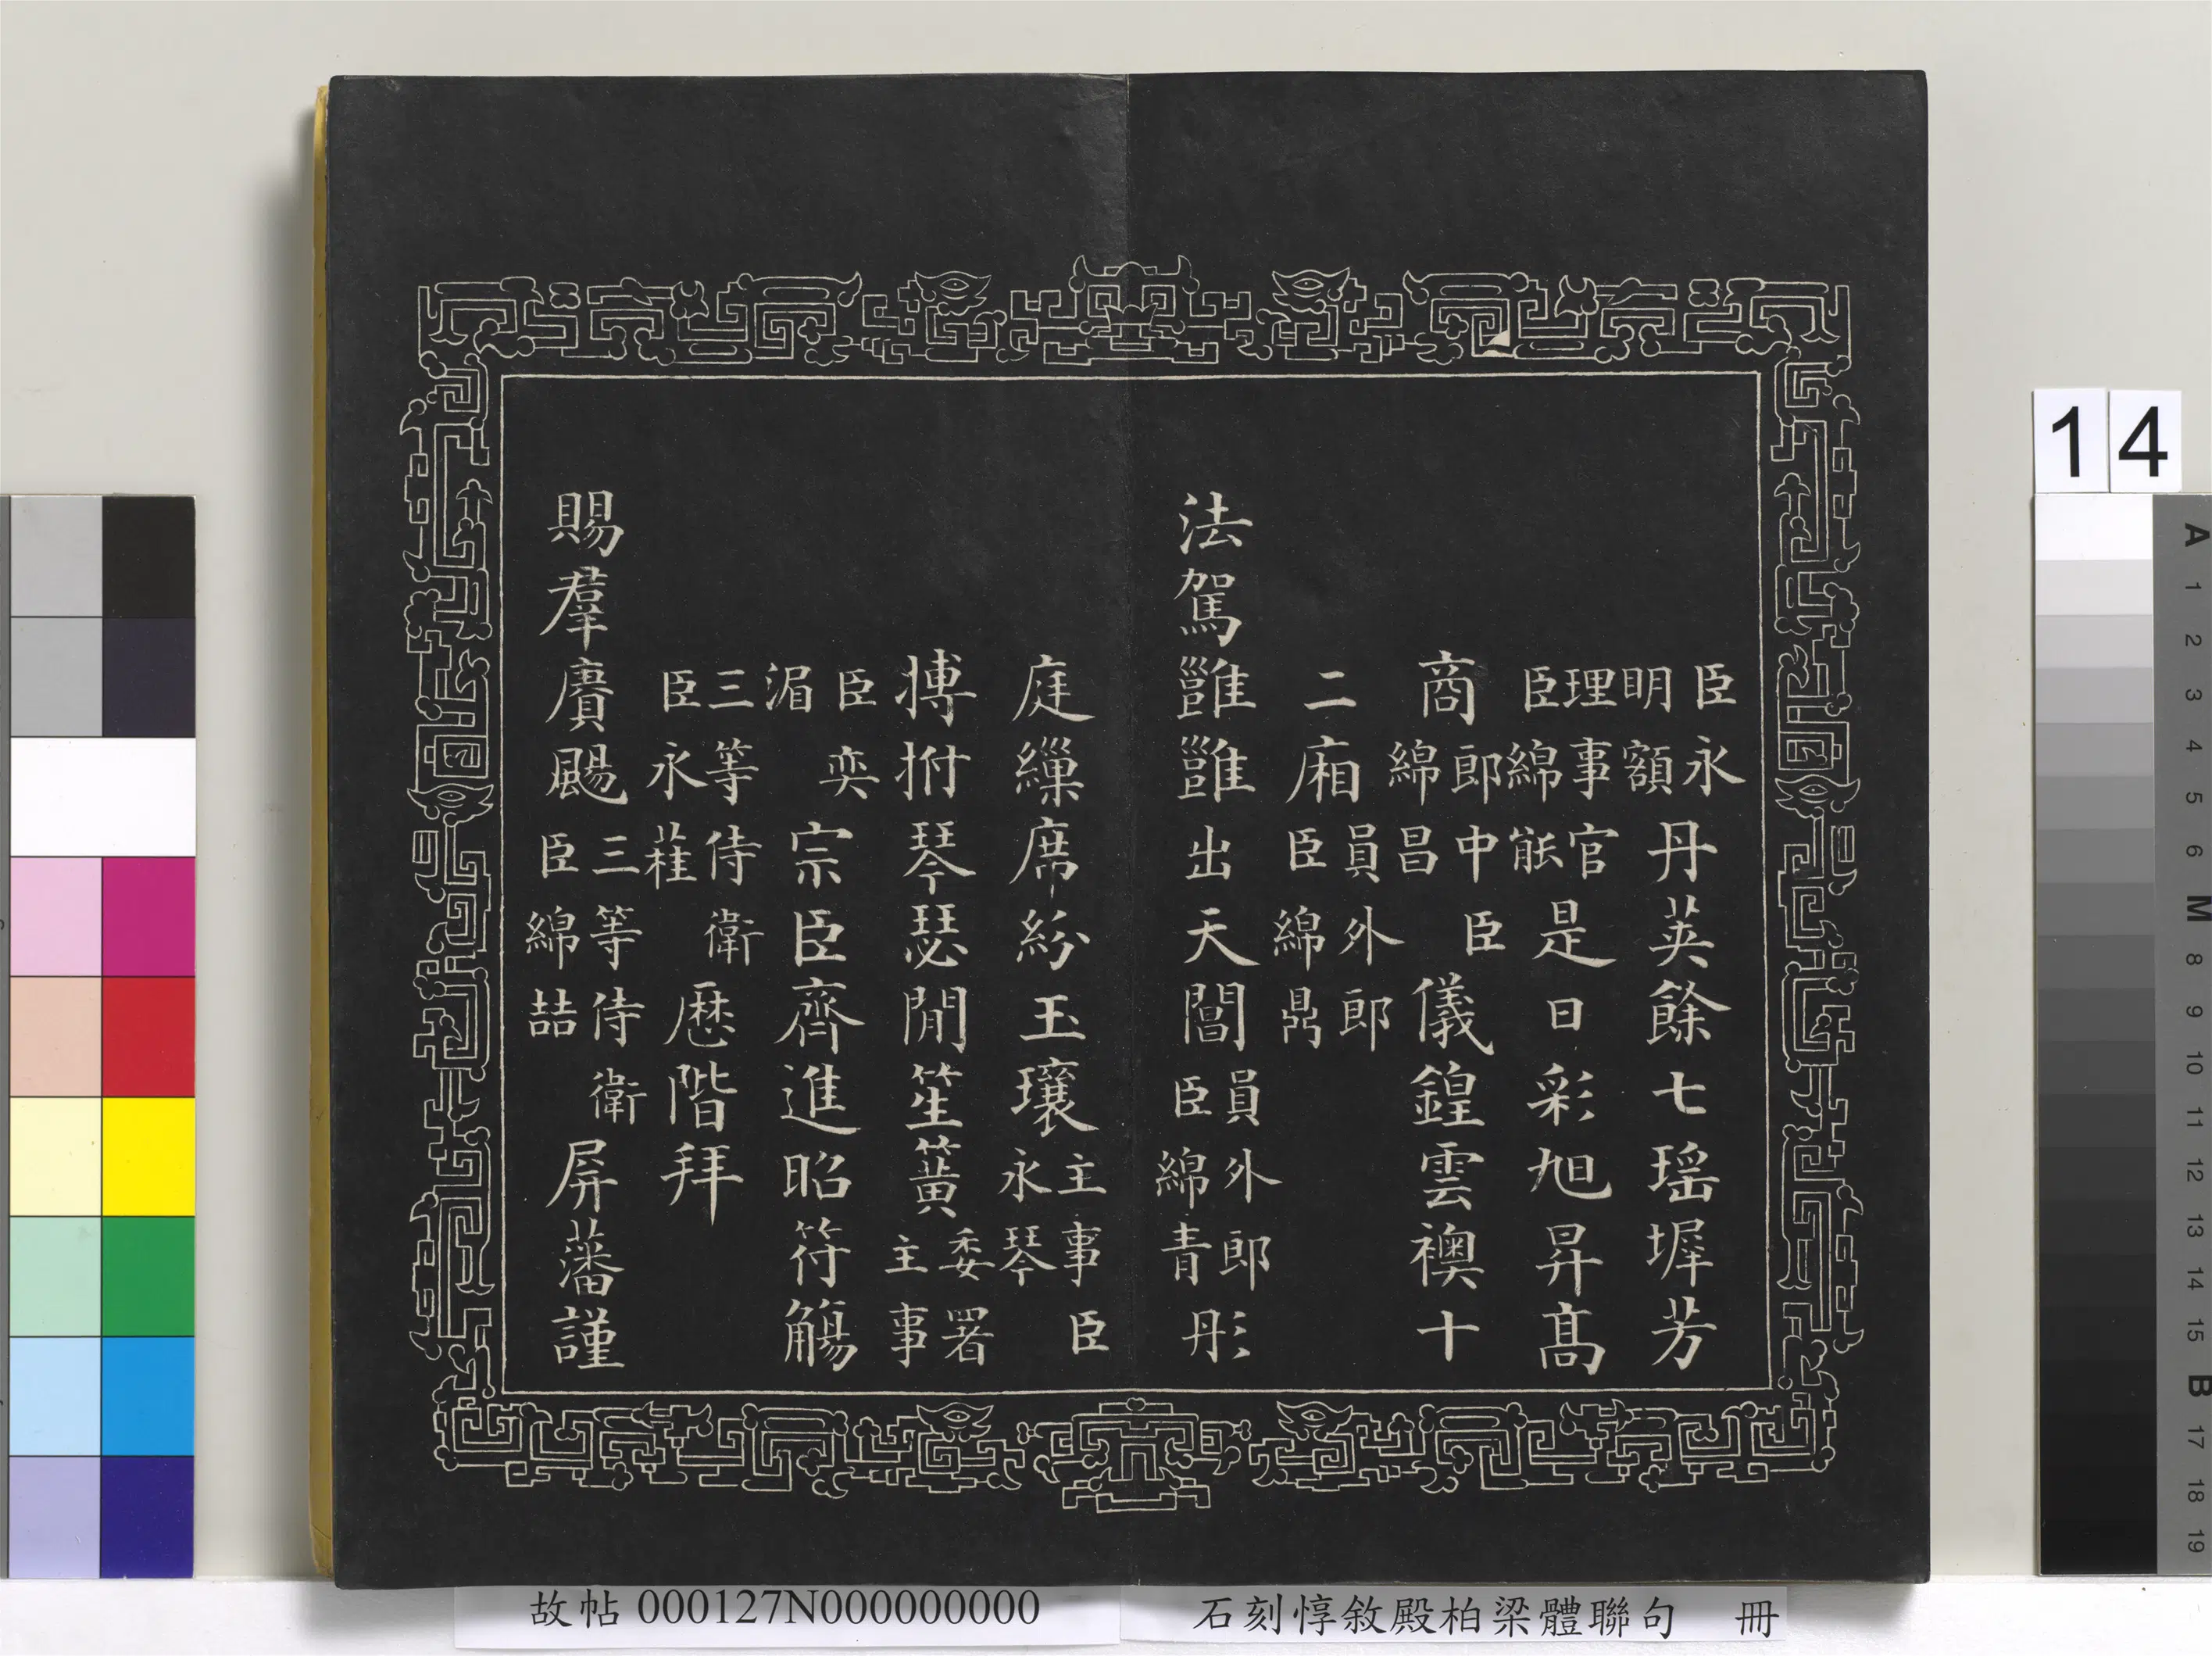 臣永明額丹英餘七瑤墀芳
理事官臣綿能是日彩旭昇高
商郎中臣綿昌儀鍠雲襖十
二廂員外郎臣綿鼎
法駕雝雝出天閶員外郎臣綿青彤
庭繅席紛玉瓖主事臣永琴
搏拊琴瑟閒笙簧委署主事
臣奕湄宗臣齊進昭符觴
三等侍衛臣永歷階拜
賜羣賡颺三等侍衛臣綿喆屏藩謹
14
A
1
2
3
4
5
6
M
8
9
10
11
12
13
14
15
B
17
18
19
故帖 000127N000000000
石刻惇敘殿柏梁體聯句 冊